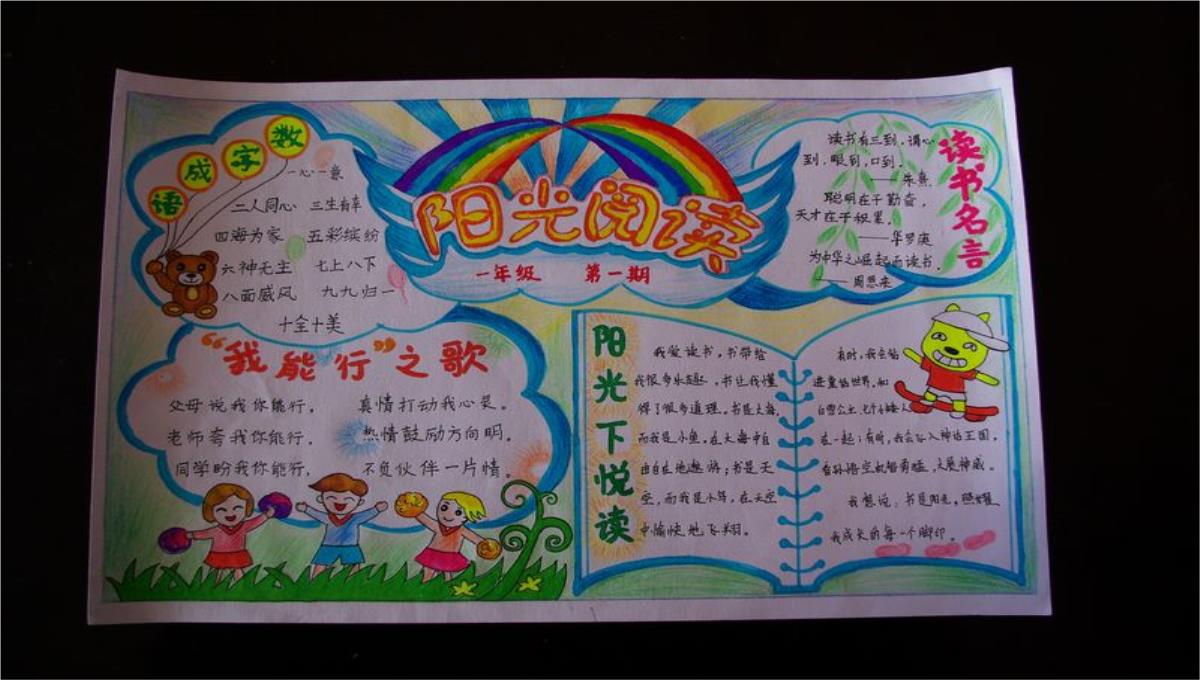 数字成语
一心一意
二人同心 三生有幸
四海为家 五彩缤纷
六神无主 七上八下
八面威风 九九归一
十全十美
阳光阅读
一年级 第一期
读书名言
读书有三到，谓心
到，眼到，口到。
——朱熹
聪明在于勤奋，
天才在于积累。
——华罗庚
为中华之崛起而读书。
——周恩来
“我能行”之歌
父母说我你能行， 真情打动我心灵。
老师夸我你能行， 热情鼓励方向明。
同学盼我你能行， 不负伙伴一片情。
阳光下悦读
我爱读书，书带给
我很多乐趣，书让我懂
得了很多道理。书是大海，
而我是小鱼，在大海中自
由自在地遨游；书是天
空，而我是小鸟，在天空
中愉快地飞翔。
有时，我会钻
进童话世界，和
白雪公主、七个小矮人
在一起；有时，我会进入神话王国，
看孙悟空大展神威。
我想说：书是阳光，照耀
我成长的每一个脚印。